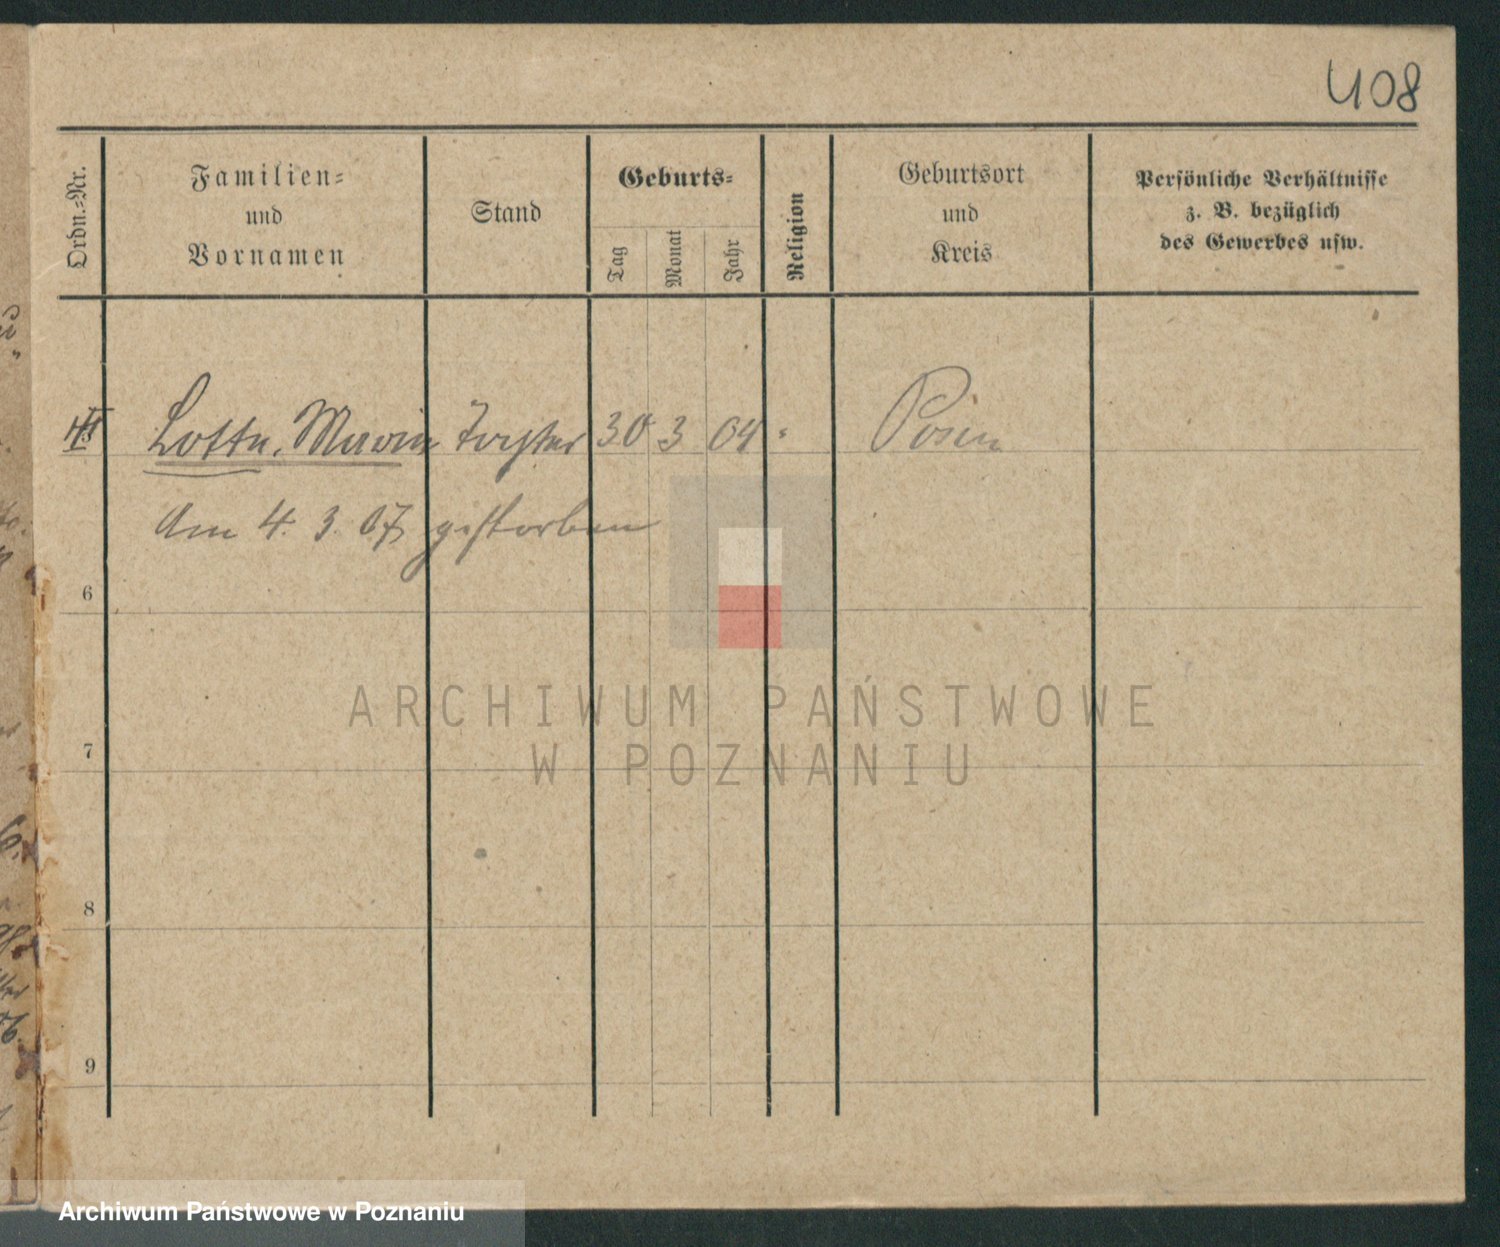 408
Ordn.-Nr.
Familien-
und
Vornamen
Stand
Geburts-
Tag
Monat
Jahr
Religion
Geburtsort
und
Kreis
Persönliche Verhältnisse
z. B. bezüglich
des Gewerbes usw.
Lotte, Marie Tochter 30 3 04 " Posen
Am 4. 3. 07 gestorben
6
7
8
9
ARCHIWUM PAŃSTWOWE
W POZNANIU
Archiwum Państwowe w Poznaniu